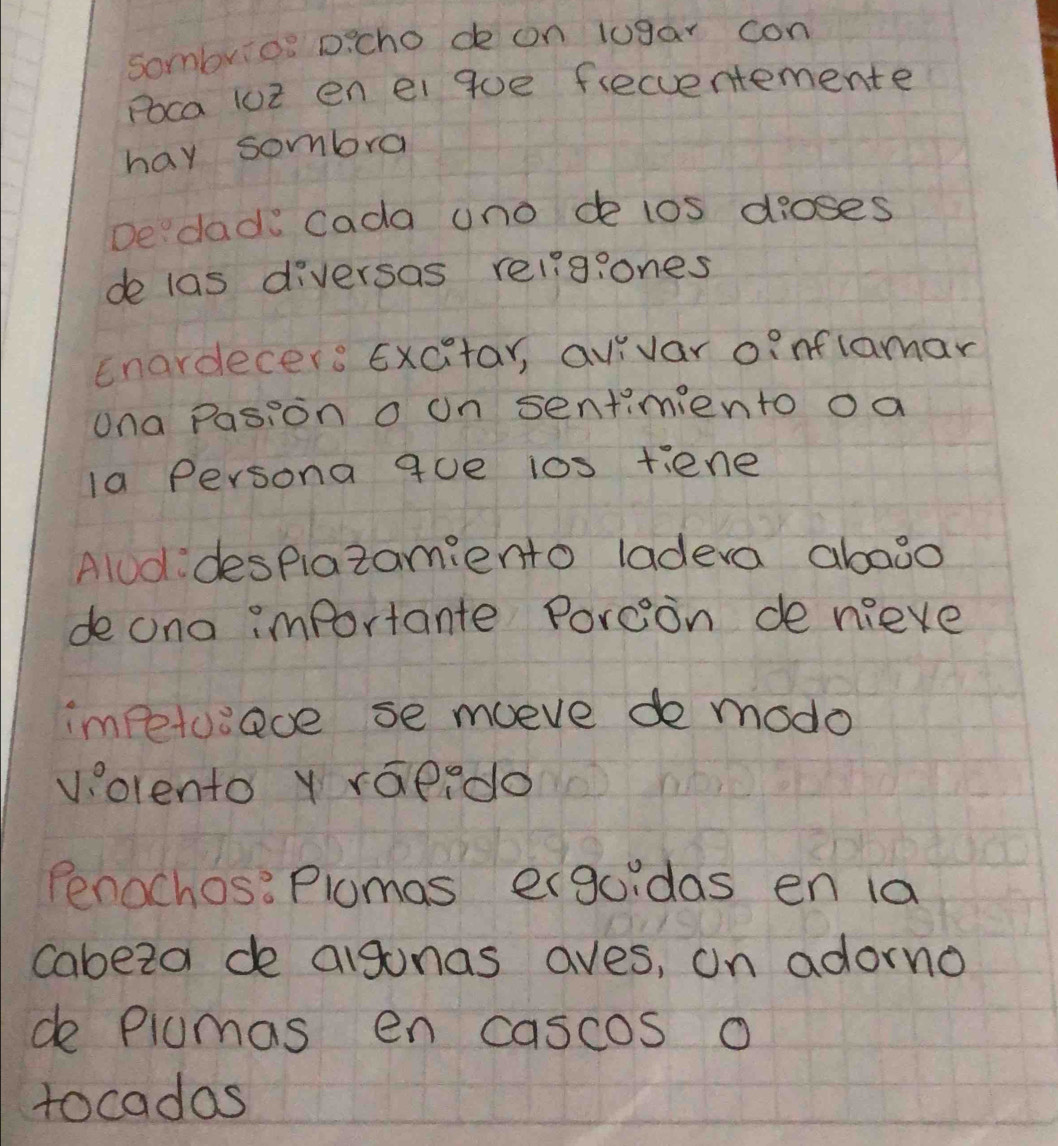 Sombrio: Dicho de un lugar con
Poca luz en el que frecuentemente
hay sombra
Deidad: Cada uno de los dioses
de las diversas religiones
Enardecer: Excitar, avivar o inflamar
una Pasión o un sentimiento o a
la Persona que los tiene
Alud: desplazamiento ladera abajo
de una importante Porción de nieve
impetu: Que se mueve de modo
violento y rápido
Penachos: Plumas erguidas en la
cabeza de algunas aves, un adorno
de Plumas en cascos o
tocados